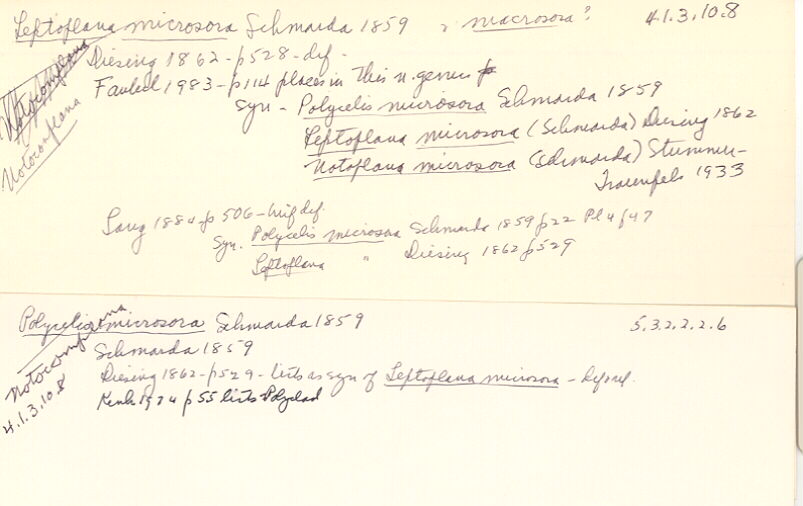 Leptoplana microsora Schmarda 1859 & macrosora? 4.1.3.10.8
Diesing 1862 - p528 - def.
Notocomplana
Faubel 1983 - p114 places in this n. genus
Notocomplana
Syn - Polycelis microsora Schmarda 1859
Leptoplana microsora (Schmarda) Diesing 1862
Notoplana microsora (Schmarda) Stummer-
Traunfels 1933
Lang 1884 - p 506 - brief def.
Syn. Polycelis microsora Schmarda 1859 p22 Pl 4 f 47
Leptoplana " Diesing 1862 p529
Polycelis microsora Schmarda 1859 5.3.2.2.2.6
Notocomplana
4.1.3.10.8
Schmarda 1859
Diesing 1862 - p529 - lists as syn of Leptoplana microsora -
Kenk 1974 p55 lists Polyclad